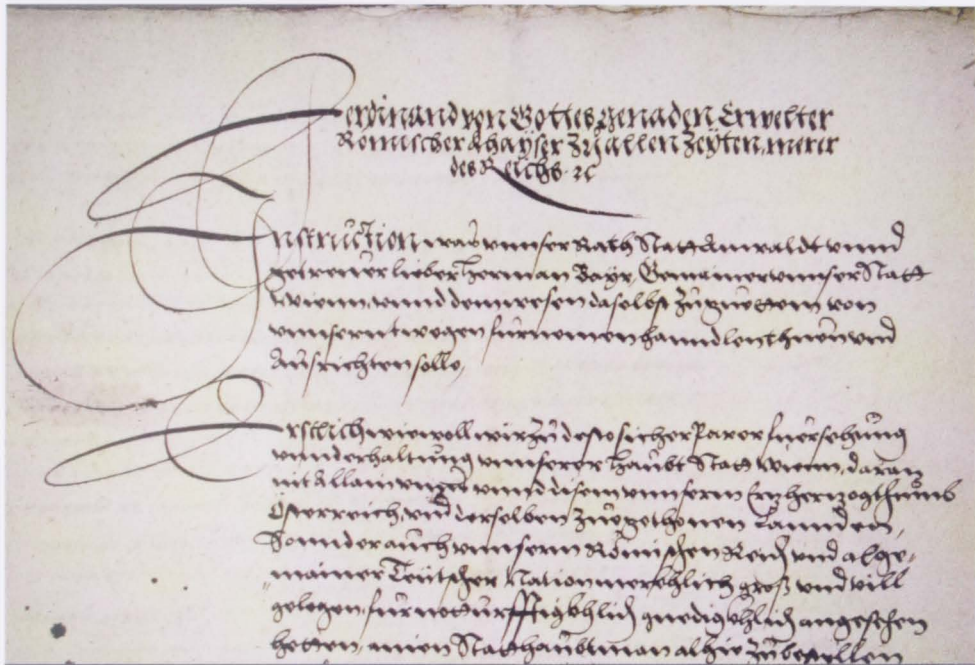 Ferdinand von Gottes genaden Erwelter
Römischer Khayser zu allen Zeyten merer
des Reichs ꝛc
Instruction was vnnser Rath Statt Anwaldt vnnd
getrewer lieber Herman Bayr, Gemainer vnnser Statt
Wienn, vnnd dem wesen daselbst zu guettem von
vnnsernt wegen furnemen hanndlen thuen vnd
Ausrichten solle,
Erstlich wiewoll wir zu desto sicherparer fuersehung
vnnd erhaltung vnnserer Haubt Statt Wienn, daran
nit allain vnns vnnd disem vnnserm Ertzherzogthumb
Österreich, vnd derselben zuegethonen Lannden,
Sonnder auch vnnserm Römischen Reich vnd alge-
mainer Teutscher Nation merckhlich groß vnd vill
gelegen, fur notturfftigkhlich gnedigkhlich angesehen
hetten, ainen Statthaubtman alhie zubestellen